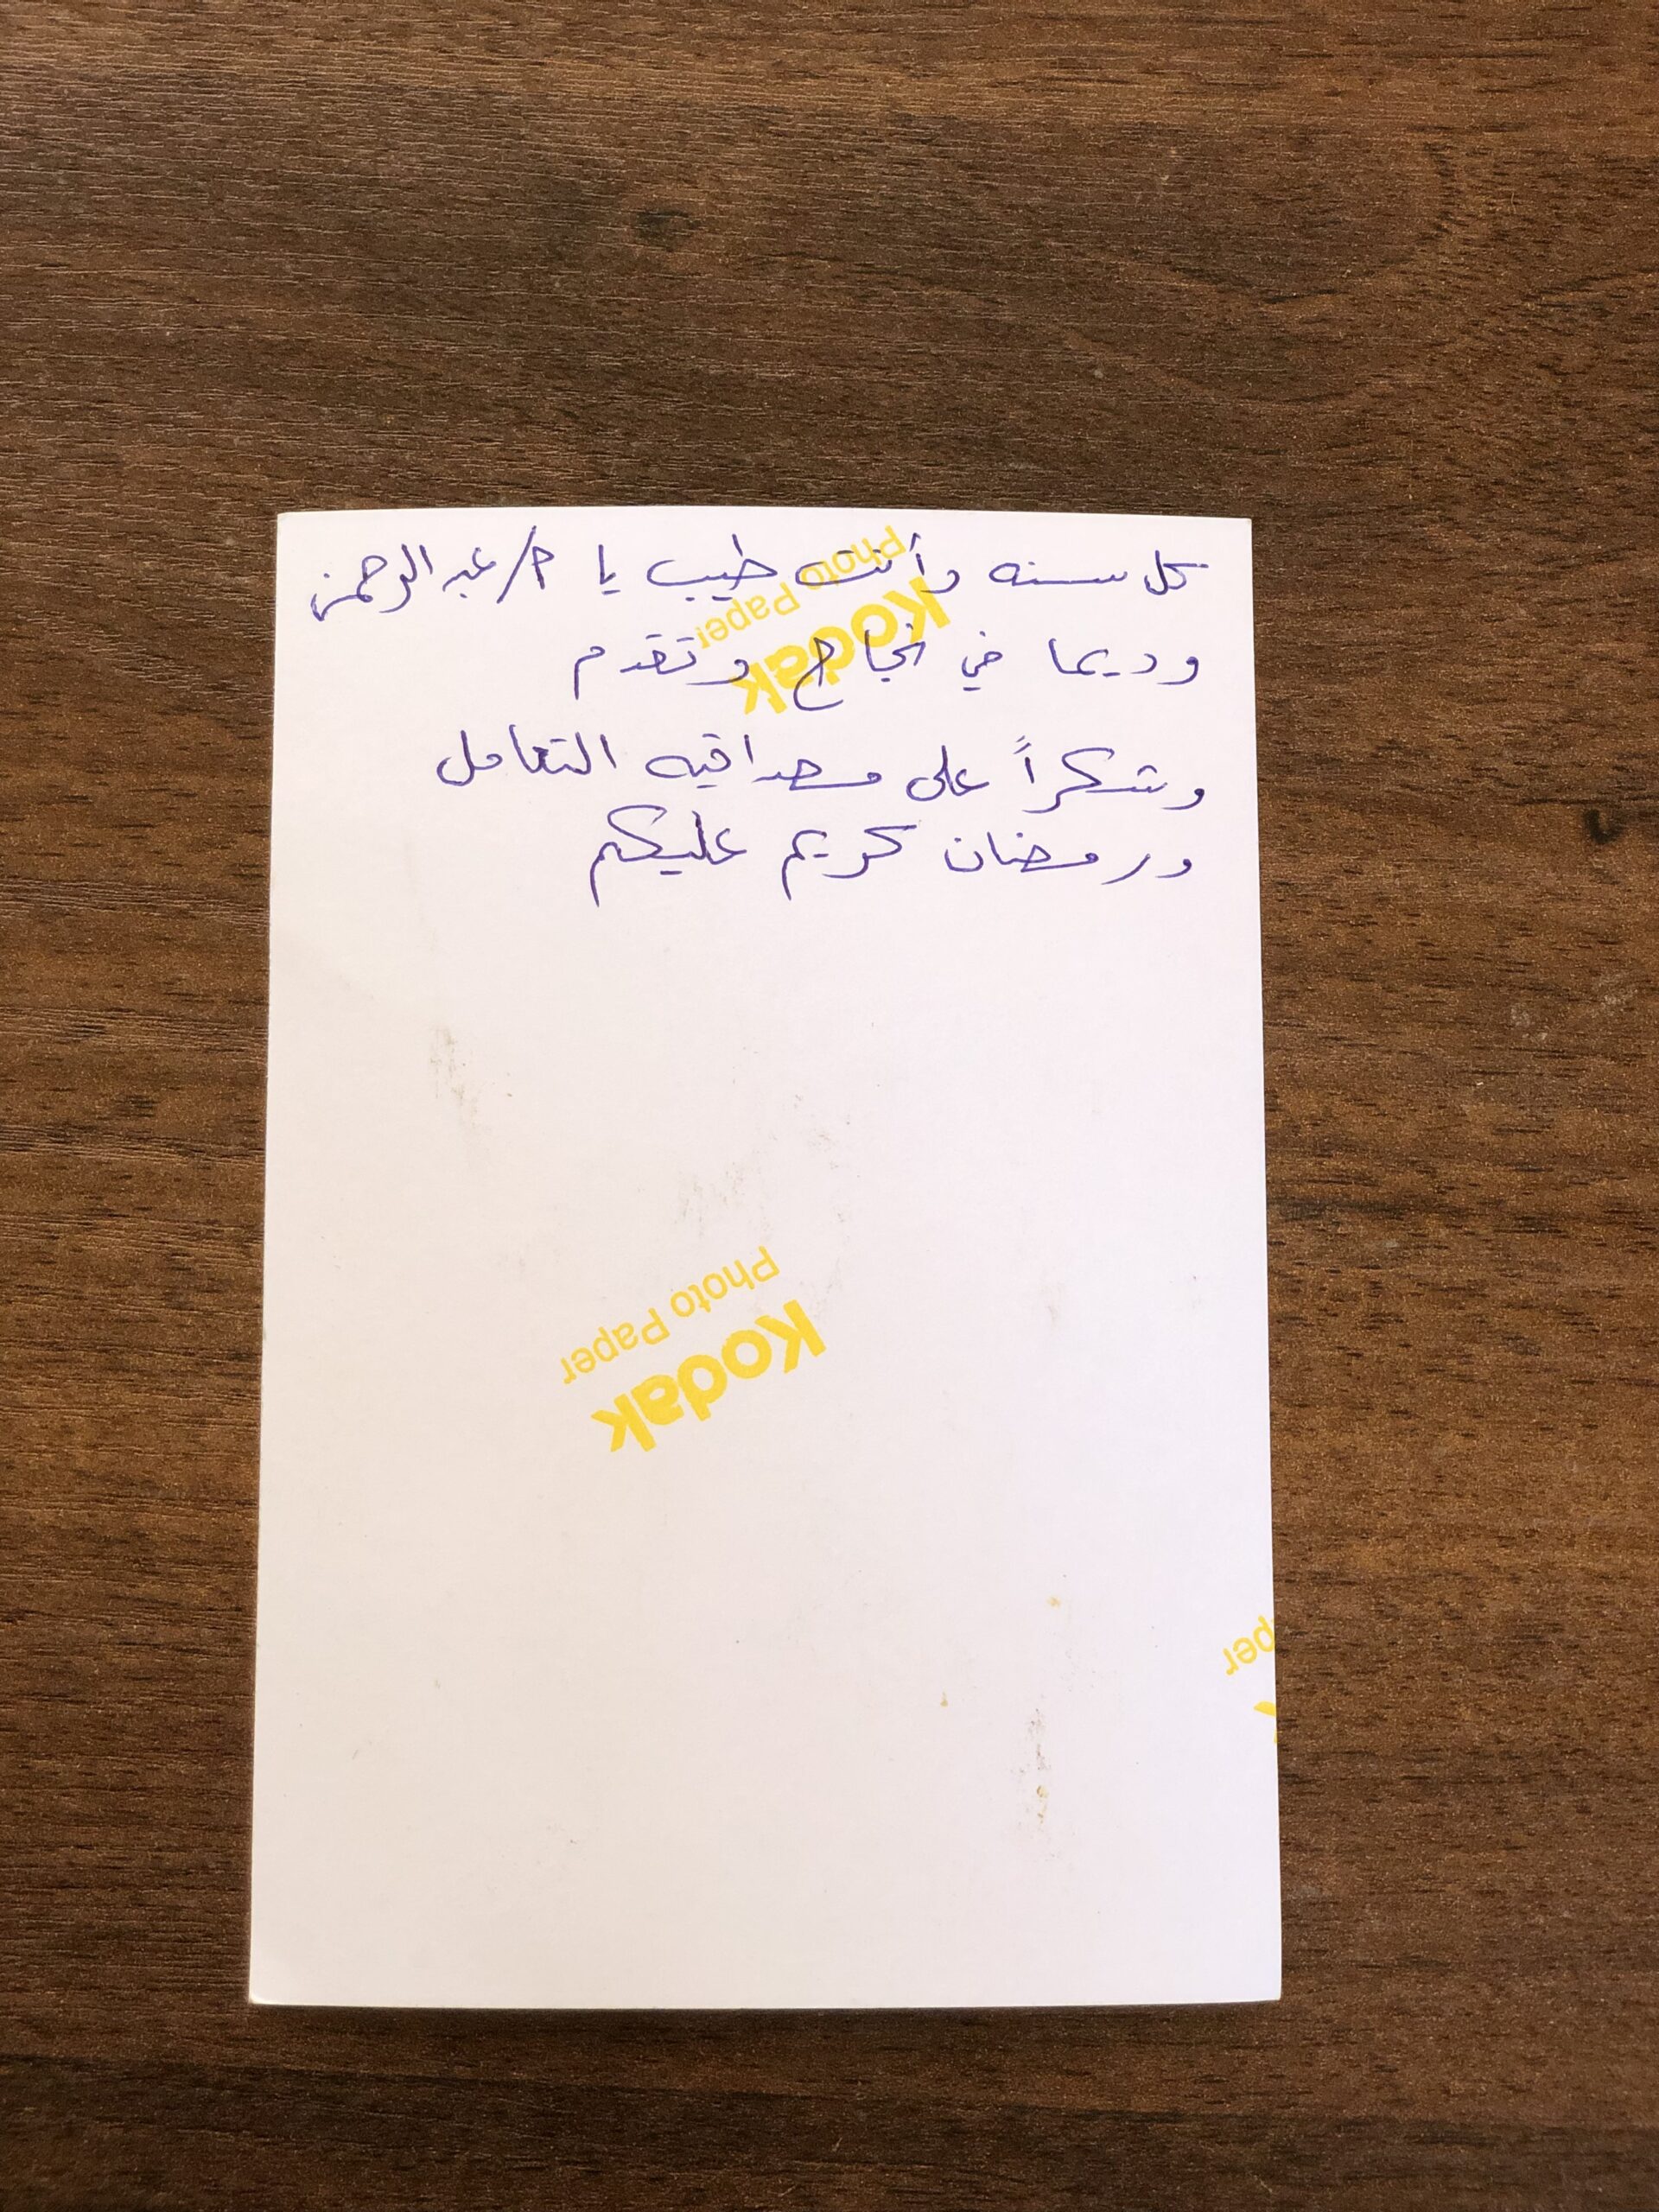 كل سنه وأنت طيب يا م/عبد الرحمن
وديما في نجاح وتقدم
وشكراً على مصداقيه التعامل
ورمضان كريم عليكم
Photo Paper
Kodak
Photo Paper
Kodak
per
k